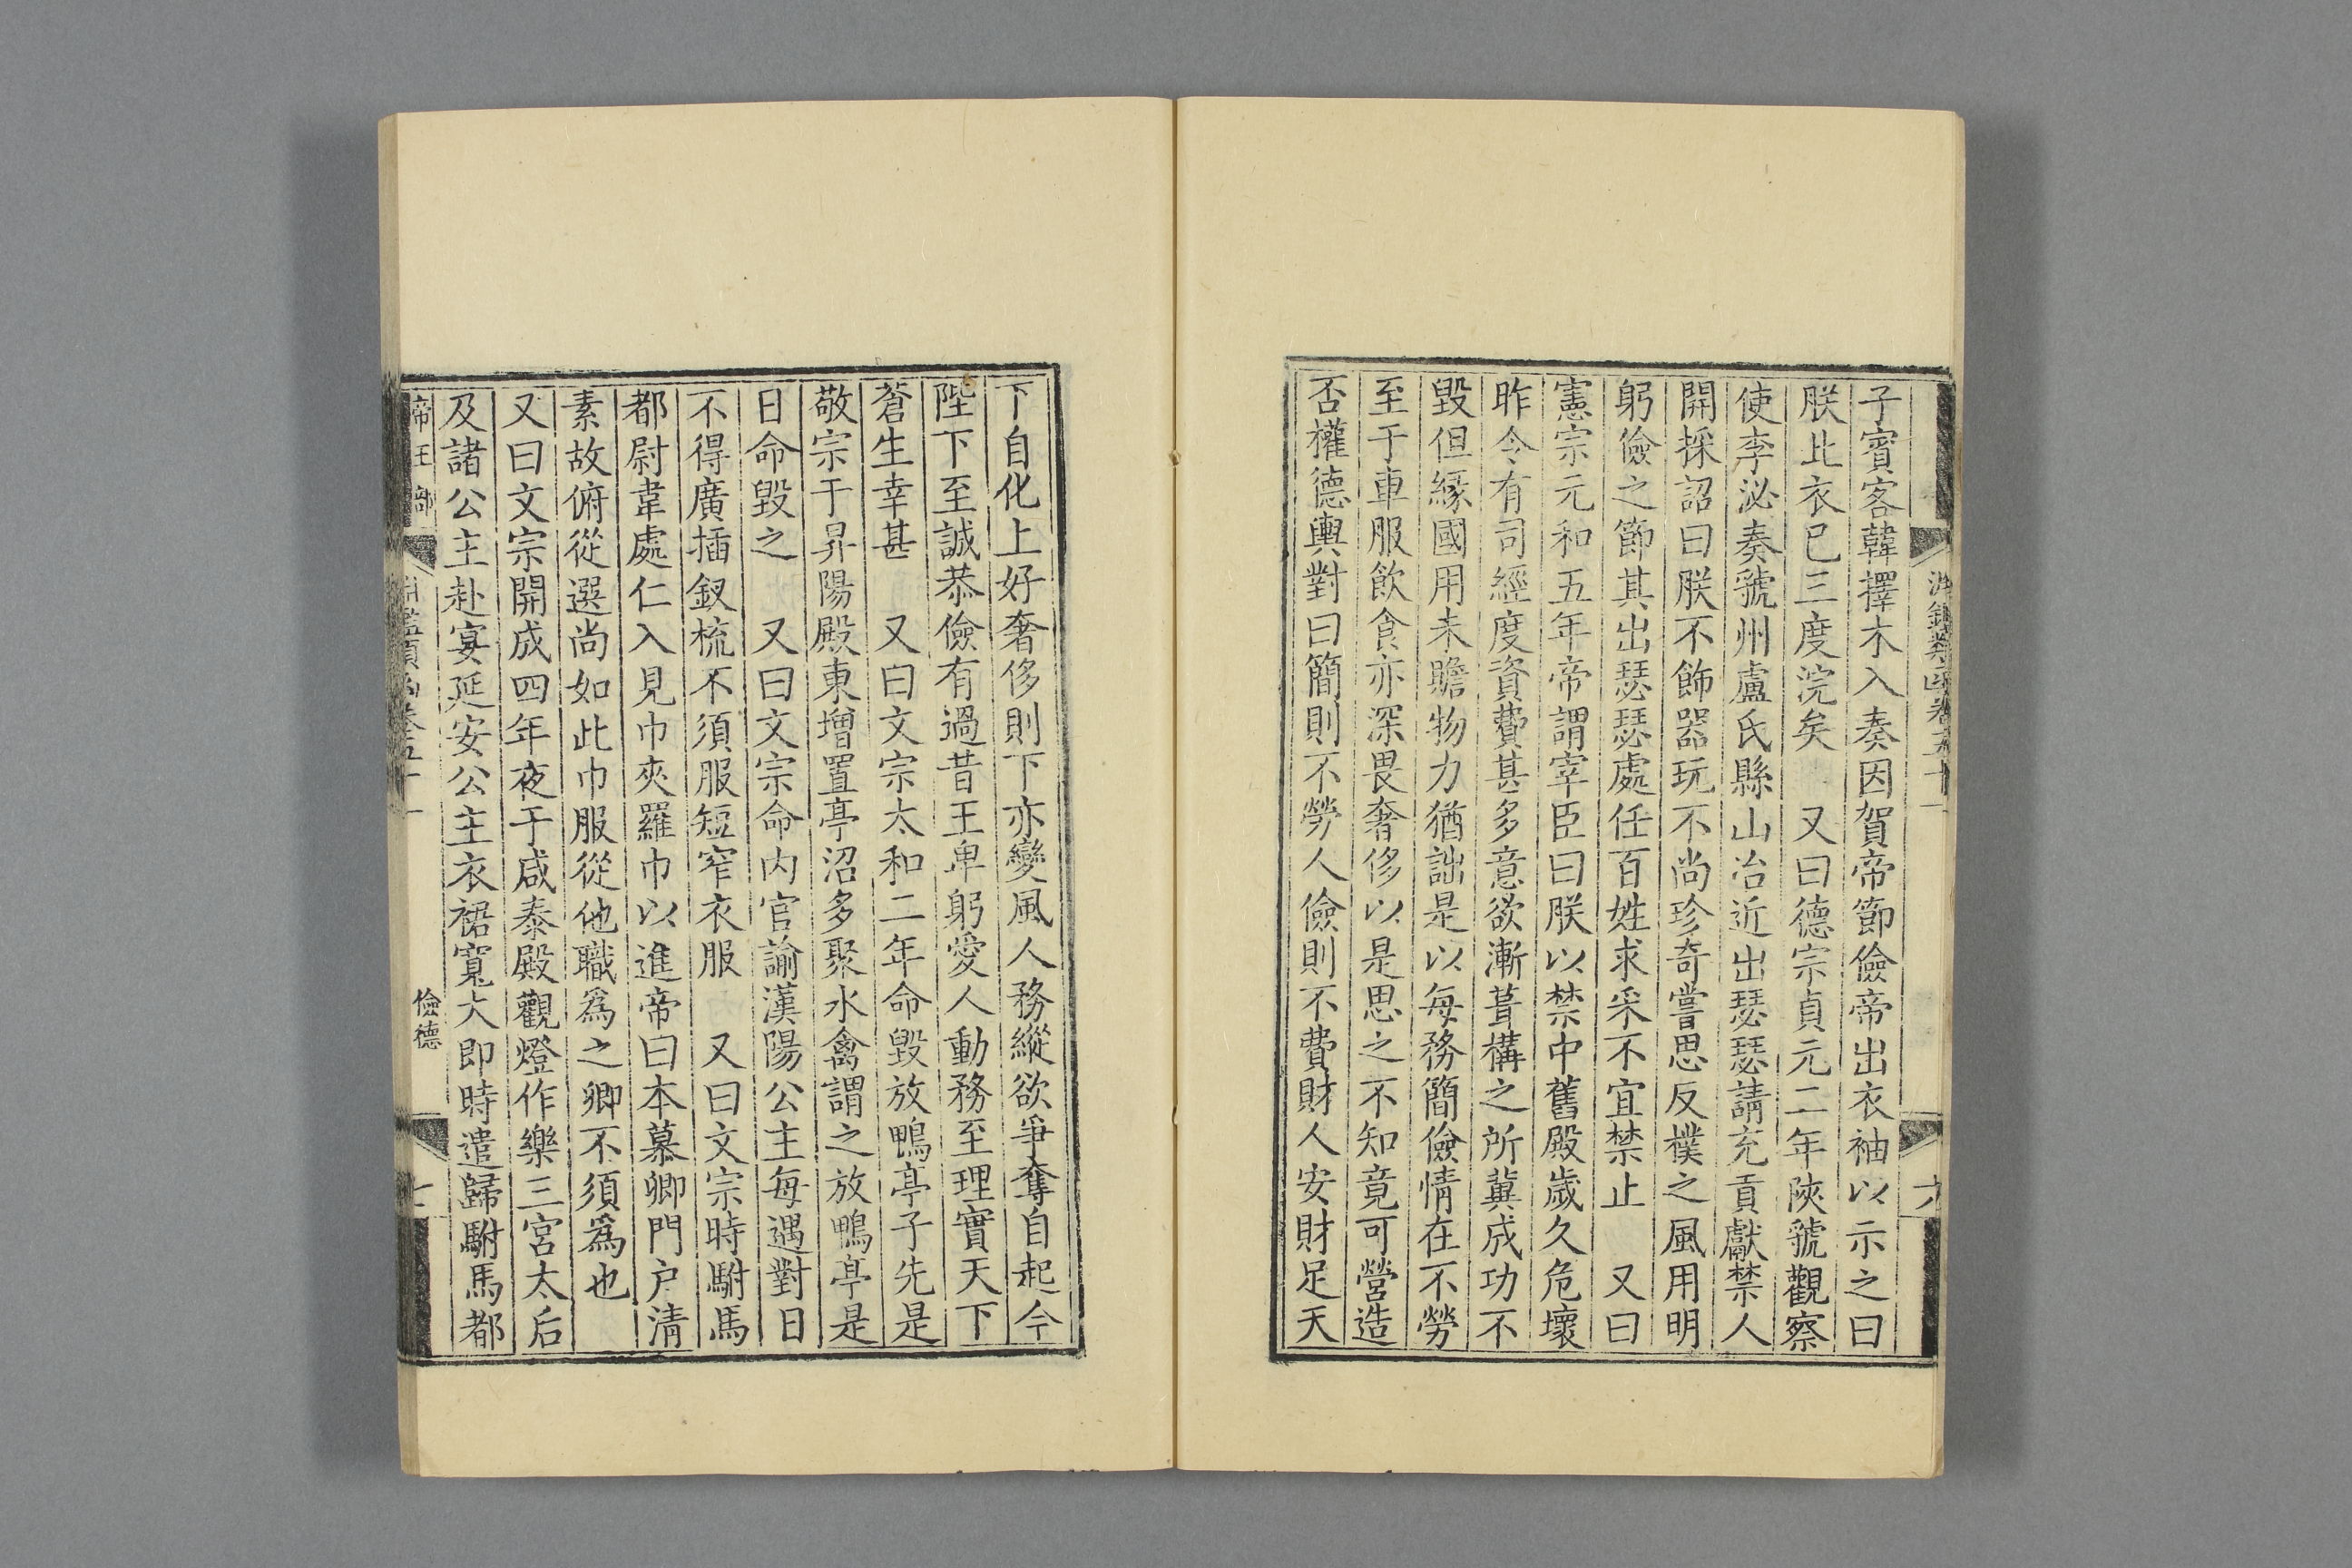 子賓客韓擇木入奏因賀帝節儉帝出衣袖以示之曰
朕此衣已三度浣矣　又曰德宗貞元二年陝虢觀察
使李泌奏虢州盧氏縣山冶近出瑟瑟請充貢獻禁人
開採詔曰朕不飾器玩不尚珍奇嘗思反樸之風用明
躬儉之節其出瑟瑟處任百姓求采不宜禁止　又曰
憲宗元和五年帝謂宰臣曰朕以禁中舊殿歲久危壞
昨令有司經度資費甚多意欲漸葺構之所冀成功不
毀但緣國用未贍物力猶詘是以每務簡儉情在不勞
至于車服飲食亦深畏奢侈以是思之不知竟可營造
否權德輿對曰簡則不勞人儉則不費財人安財足天
下自化上好奢侈則下亦變風人務縱欲爭奪自起今
陛下至誠恭儉有過昔王卑躬愛人動務至理實天下
蒼生幸甚　又曰文宗太和二年命毀放鴨亭子先是
敬宗于昇陽殿東增置亭沼多聚水禽謂之放鴨亭是
日命毀之　又曰文宗命内官諭漢陽公主每遇對日
不得廣插釵梳不須服短窄衣服　又曰文宗時駙馬
都尉韋處仁入見巾夾羅巾以進帝曰本慕卿門户清
素故俯從選尚如此巾服從他職爲之卿不須爲也
又曰文宗開成四年夜于咸泰殿觀燈作樂三宮太后
及諸公主赴宴延安公主衣裾寬大即時遣歸駙馬都
帝王部
儉德
七